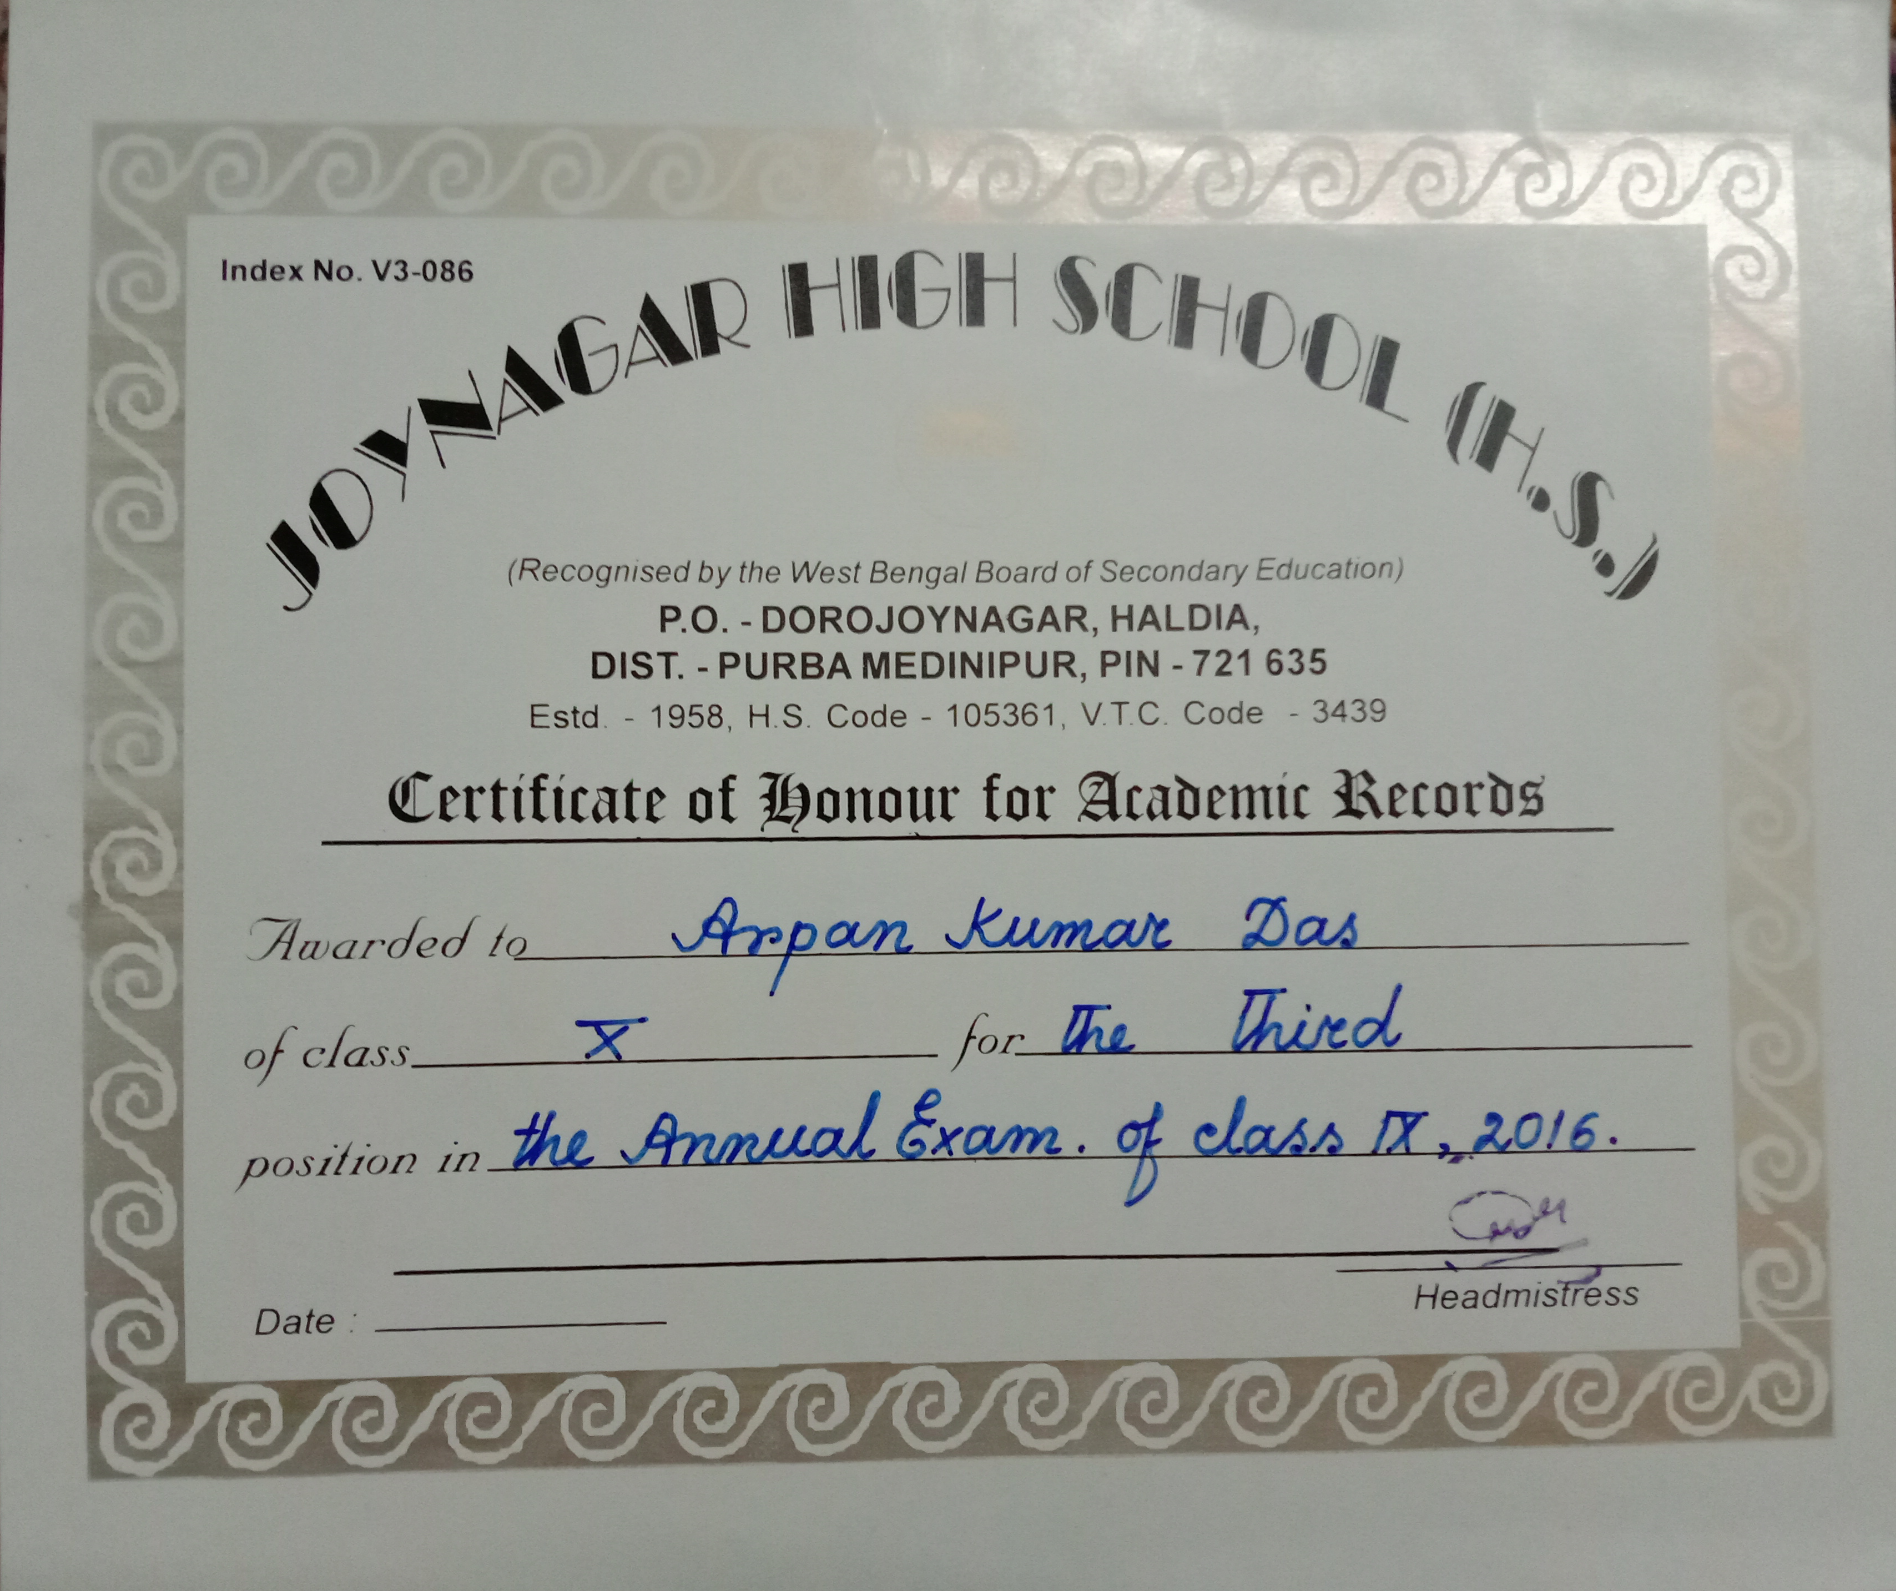 Index No. V3-086
JOYNAGAR HIGH SCHOOL (H.S.)
(Recognised by the West Bengal Board of Secondary Education)
P.O. - DOROJOYNAGAR, HALDIA,
DIST. - PURBA MEDINIPUR, PIN - 721 635
Estd. - 1958, H.S. Code - 105361, V.T.C. Code - 3439
Certificate of Honour for Academic Records
Awarded to Arpan Kumar Das
of class X for The Third
position in the Annual Exam. of class IX, 2016.
Headmistress
Date :